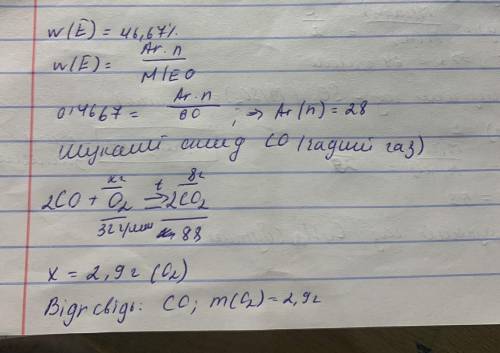 w(E) = 46,67%
w(E) = Ar·n / M(EO
0,4667 = Ar·n / 60 ; ⇒ Ar(n) = 28
Шуканий склад CO (чадний газ)
xг 8г
2CO + O₂ t→ 2CO₂
32г/моль 88
x = 2,9г (O₂)
Відповідь: CO; m(O₂) = 2,9г